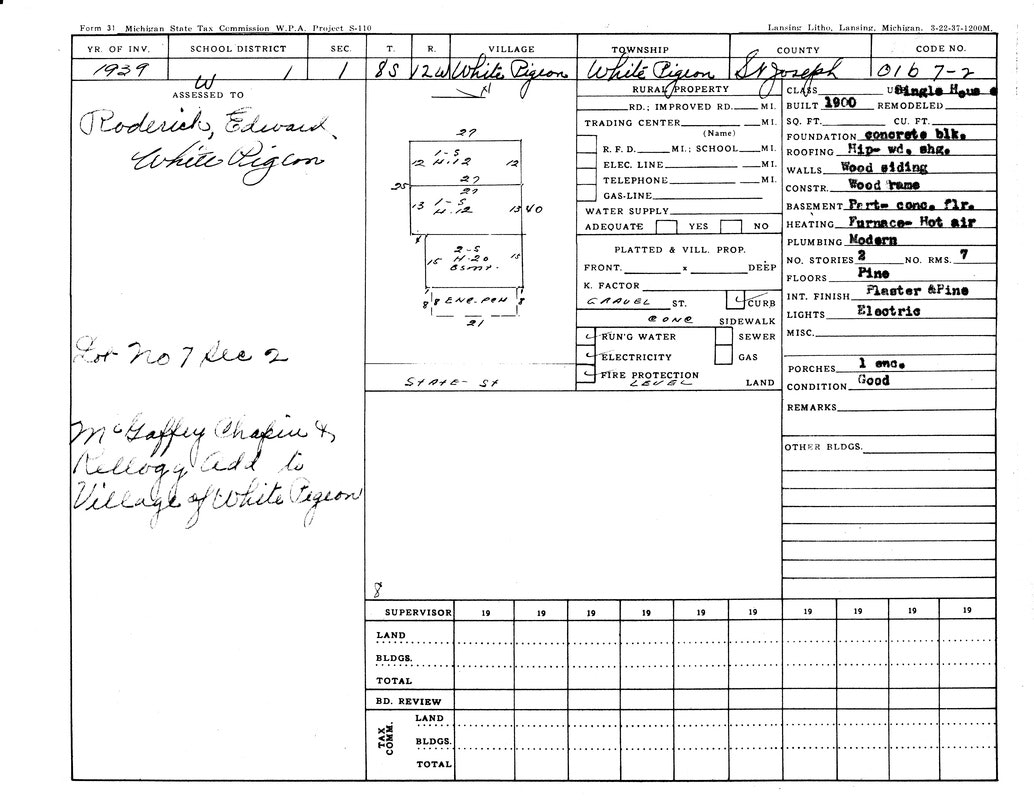 Form 31 Michigan State Tax Commission W.P.A. Project S-110
Lansing Litho, Lansing, Michigan. 3-22-37-1200M.
YR. OF INV. SCHOOL DISTRICT SEC. T. R. VILLAGE TOWNSHIP COUNTY CODE NO.
1939 W 1 1 8S 12W White Pigeon White Pigeon St Joseph 016 7-2
ASSESSED TO
Roderick, Edward.
White Pigeon
Lot No 7 Sec 2
McGaffey Chapin &
Kellogg Add to
Village of White Pigeon
N
27
1-S
12 H.12 12
27
25 27
1-S
13 H-12 13 40
2-S
15 H-20 15
Bsmt.
8 8 ENC. PCH 8
21
STATE-ST
8
RURAL PROPERTY
RD.; IMPROVED RD. MI.
TRADING CENTER MI.
(Name)
R. F. D. MI.; SCHOOL MI.
ELEC. LINE MI.
TELEPHONE MI.
GAS-LINE
WATER SUPPLY
ADEQUATE YES NO
PLATTED & VILL. PROP.
FRONT. x DEEP
K. FACTOR
GRAVEL ST. CURB
CONC SIDEWALK
RUN'G WATER SEWER
ELECTRICITY GAS
FIRE PROTECTION
LEVEL LAND
CLASS Single House
BUILT 1900 REMODELED
SQ. FT. CU. FT.
FOUNDATION concrete blk.
ROOFING Hip- wd. shg.
WALLS Wood siding
CONSTR. Wood rame
BASEMENT Part- conc. flr.
HEATING Furnace- Hot air
PLUMBING Modern
NO. STORIES 2 NO. RMS. 7
FLOORS Pine
INT. FINISH Plaster &Pine
LIGHTS Electric
MISC.
PORCHES 1 enc.
CONDITION Good
REMARKS
OTHER BLDGS.
SUPERVISOR 19 19 19 19 19 19 19 19 19 19
LAND
BLDGS.
TOTAL
BD. REVIEW
TAX COMM.
LAND
BLDGS.
TOTAL